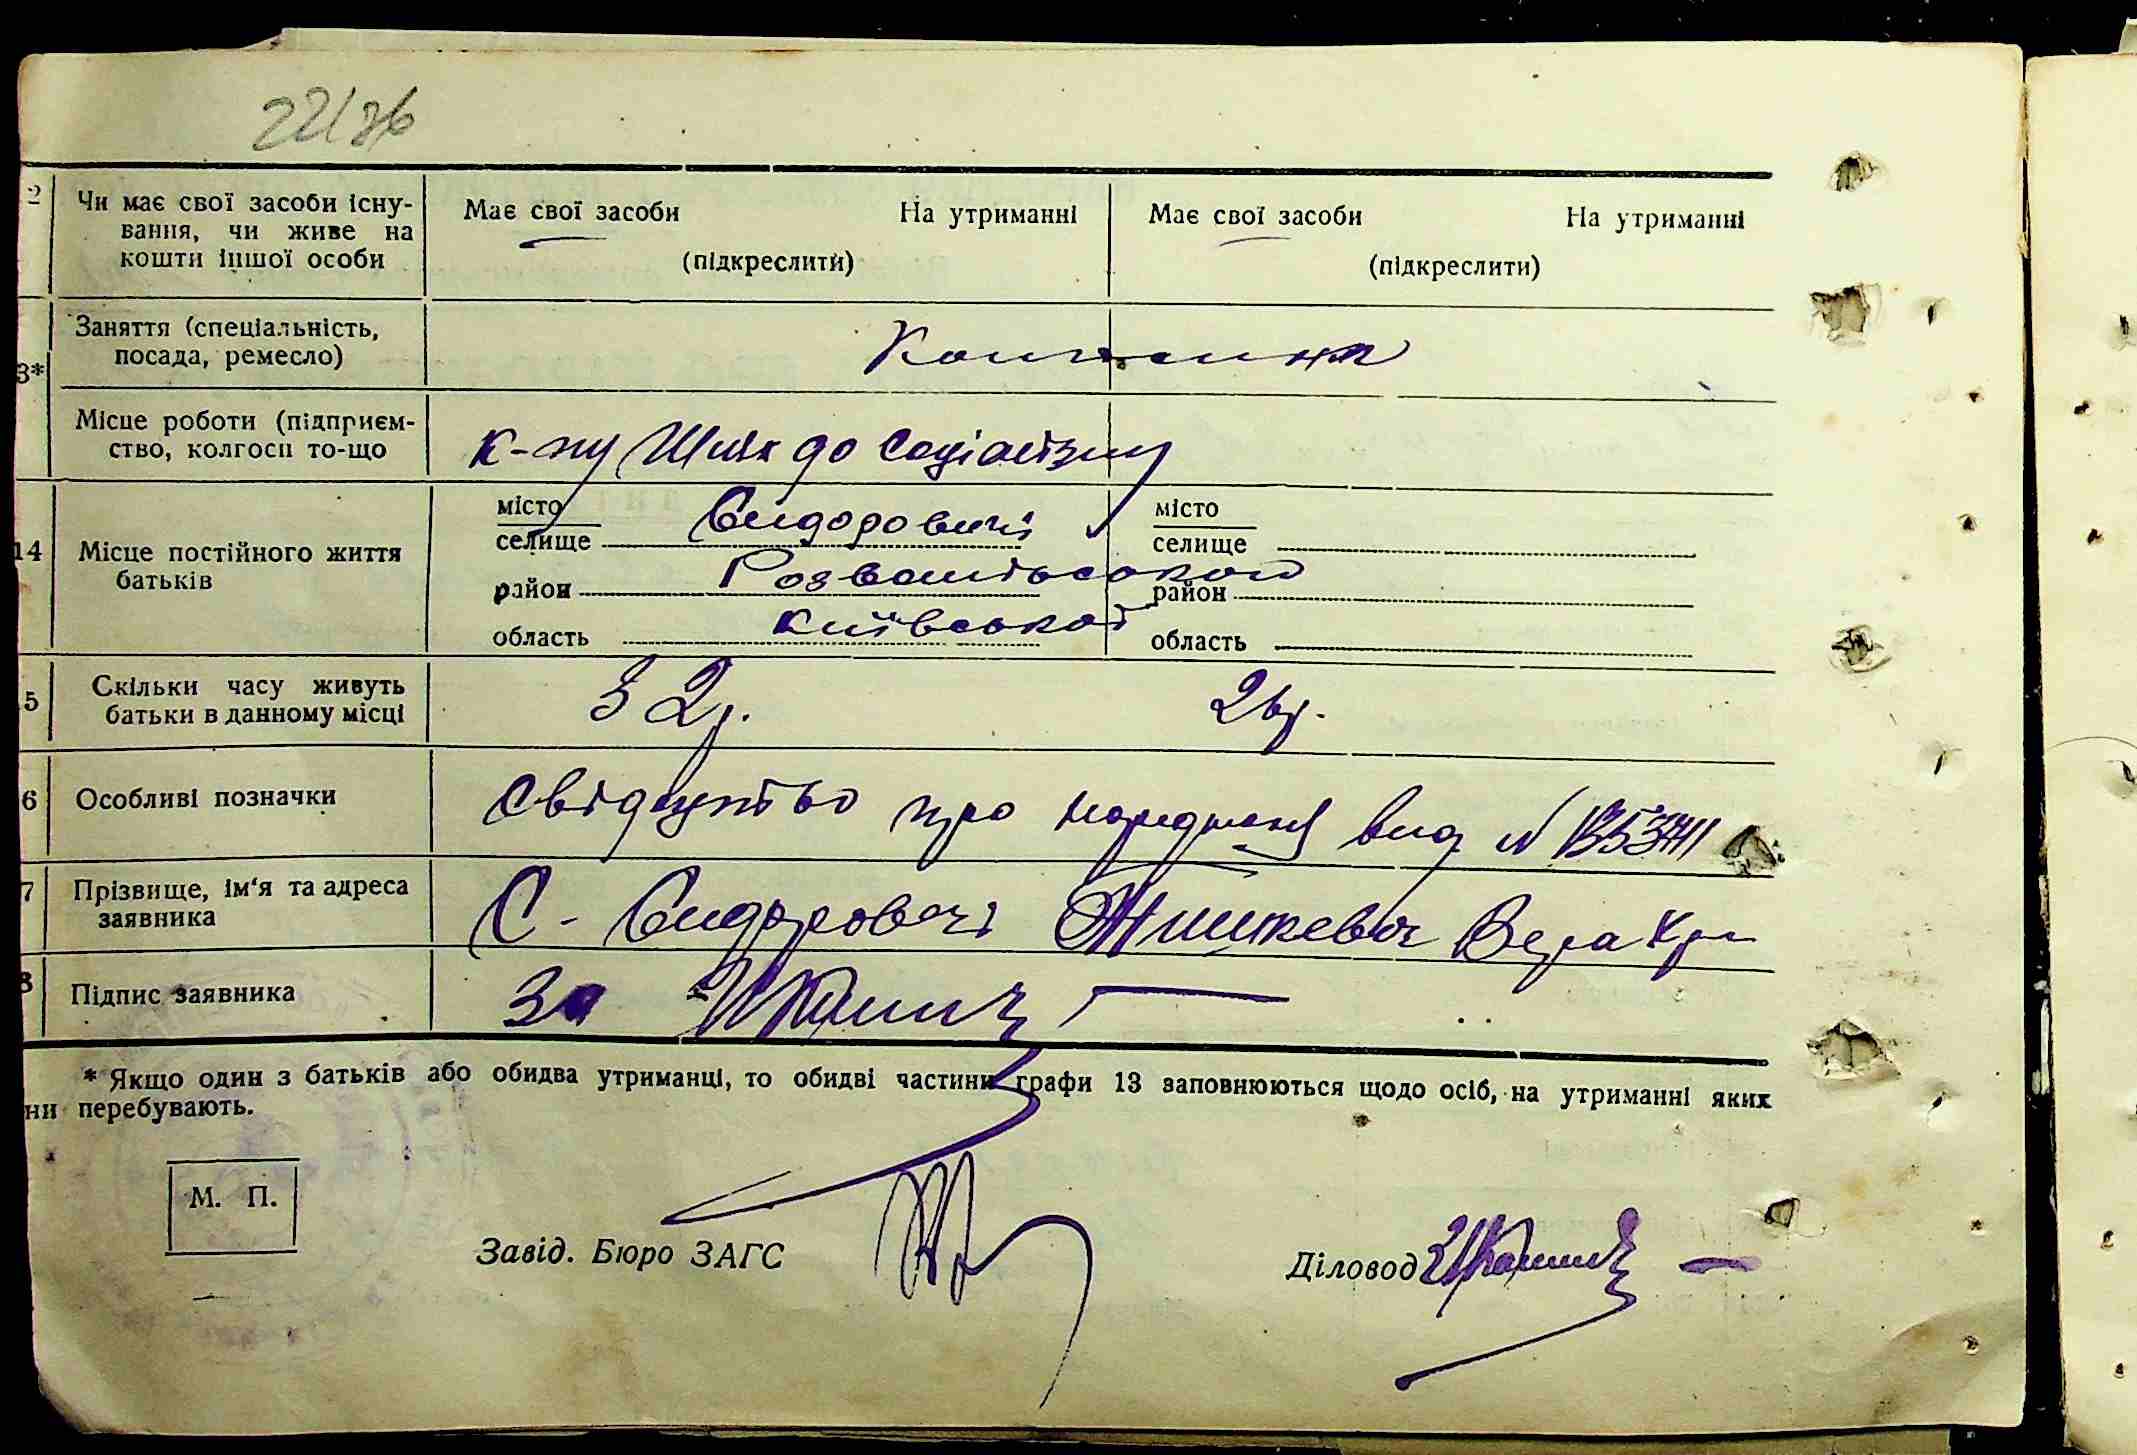 22/36
2 Чи має свої засоби існу-
вання, чи живе на
кошти іншої особи
Має свої засоби На утриманні
(підкреслити)
Має свої засоби На утриманні
(підкреслити)
3* Заняття (спеціальність,
посада, ремесло)
Місце роботи (підприєм-
ство, колгосп то-що
к-пу Шлях до Соціалізму
14 Місце постійного життя
батьків
місто
селище Сидоровичі
район Розважівського
область Київської
місто
селище
район
область
5 Скільки часу живуть
батьки в данному місці
32 р. 26 р.
6 Особливі позначки
Свідоцтво про народження вид N
7 Прізвище, ім'я та адреса
заявника
С. Сидоровичі Вера
8 Підпис заявника
За
* Якщо один з батьків або обидва утриманці, то обидві частини графи 13 заповнюються щодо осіб, на утриманні яких
ни перебувають.
М. П.
Завід. Бюро ЗАГС
Діловод